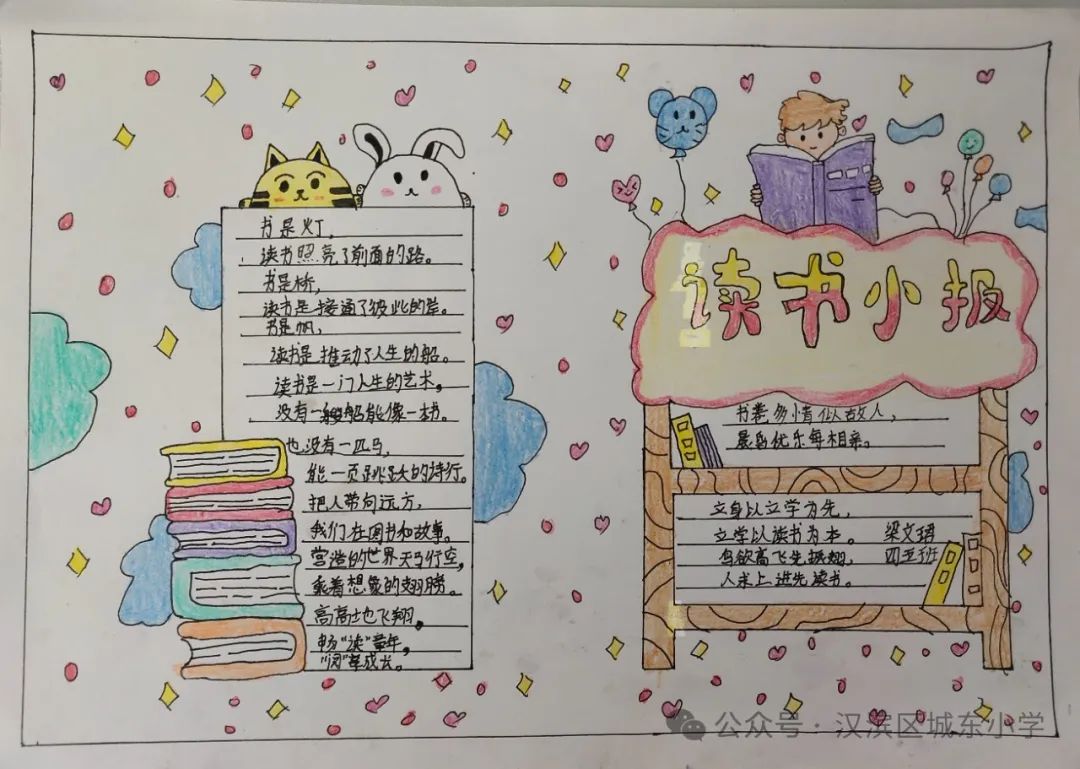 书是灯，
读书照亮了前面的路。
书是桥，
读书是接通了彼此的岸。
书是帆，
读书是推动了人生的船。
读书是一门人生的艺术，
没有一艘船能像一本书。
也没有一匹马，
能一页跳跃的诗行。
把人带向远方，
我们在图书和故事。
营造的世界天马行空，
乘着想象的翅膀。
高高地飞翔，
畅“读”童年，
“阅”享成长。
读书小报
书卷多情似故人，
晨昏忧乐每相亲。
立身以立学为先，
立学以读书为本。 梁文珺
鸟欲高飞先振翅， 四五班
人求上进先读书。
公众号·汉滨区城东小学